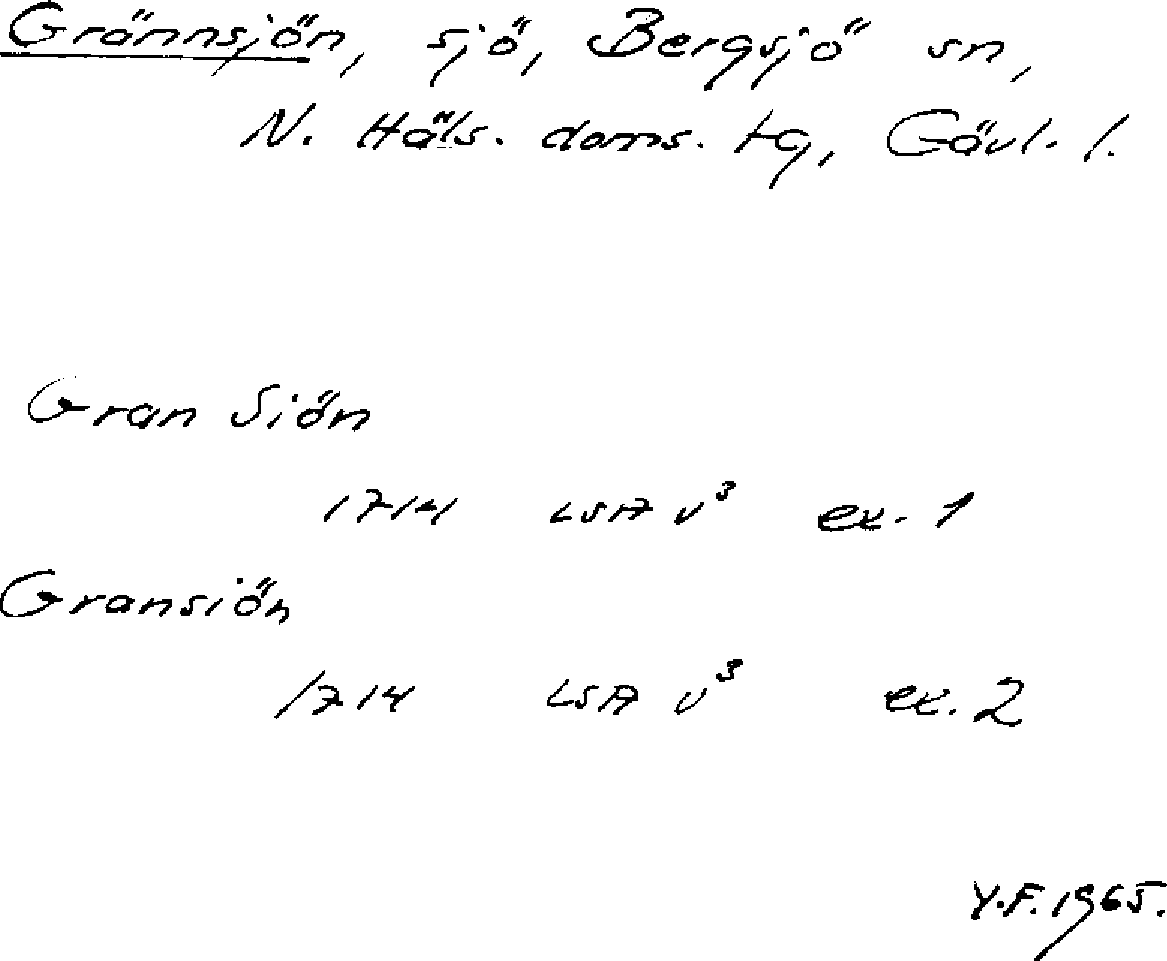 Grännsjön, sjö, Bergsjö sn,
N. Häls. doms. tg, Gävl. l.
Gran Siön
1714 LSA V³ ex. 1
Gransiön
1714 LSA V³ ex. 2
Y.F. 1965.